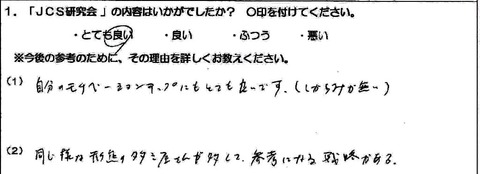 1. 「JCS研究会」の内容はいかがでしたか? ○印を付けてください。
・とても良い ・良い ・ふつう ・悪い
※今後の参考のために、その理由を詳しくお教えください。
(1) 自分のモチベーションアップにもとても良いです。(しがらみが無い)
(2) 同じ様な形態のタタミ屋さんが多くて、参考になる戦略がある。